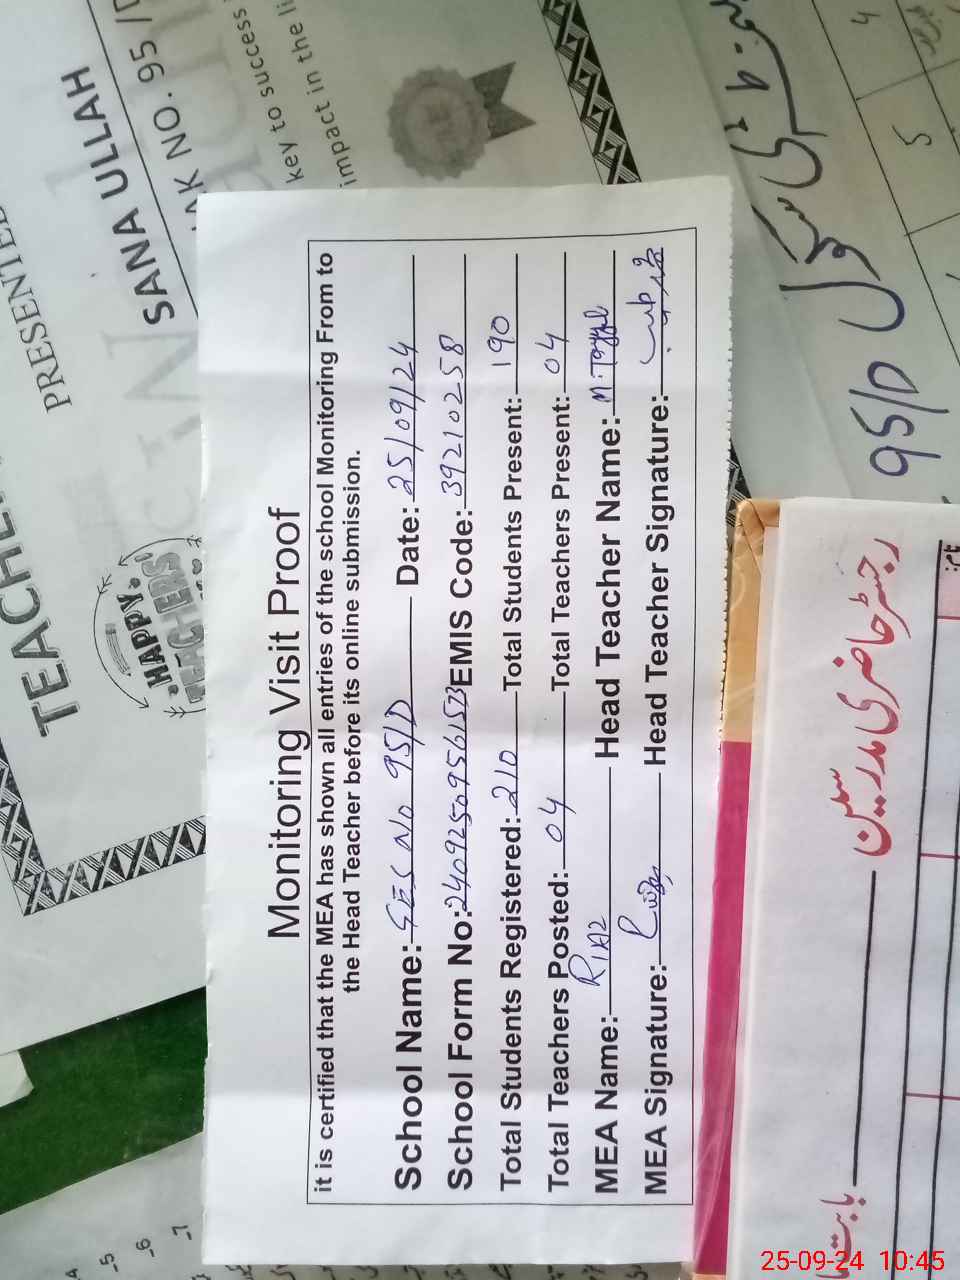 Monitoring Visit Proof
it is certified that the MEA has shown all entries of the school Monitoring From to
the Head Teacher before its online submission.
School Name: GES No 95/D Date: 25/09/24
School Form No: 24092509561573 EMIS Code: 39210258
Total Students Registered: 210 Total Students Present: 190
Total Teachers Posted: 04 Total Teachers Present: 04
MEA Name: RIAZ Head Teacher Name: M. Tayyab
MEA Signature: Head Teacher Signature:
PRESENTED
SANA ULLAH
AK NO. 95 /D
key to success
impact in the li
TEACHE
HAPPY
TEACHERS'
95/D
4
5
رجسٹر حاضری مدرسین
بابت
نام:
-5
-6
-7
25-09-24 10:45